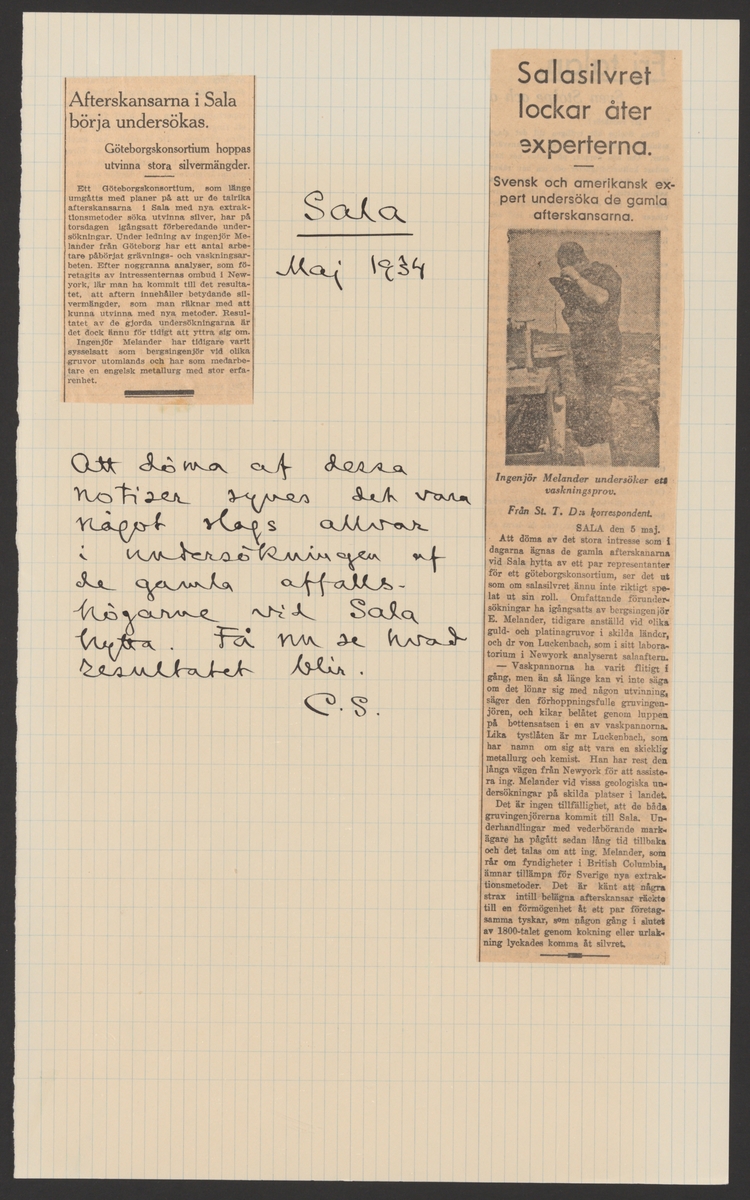 Afterskansarna i Sala
börja undersökas.
Göteborgskonsortium hoppas
utvinna stora silvermängder.
Ett Göteborgskonsortium, som länge
umgåtts med planer på att ur de talrika
afterskansarna i Sala med nya extrak-
tionsmetoder söka utvinna silver, har på
torsdagen igångsatt förberedande under-
sökningar. Under ledning av ingenjör Me-
lander från Göteborg har ett antal arbe-
tare påbörjat grävnings- och vaskningsar-
beten. Efter noggranna analyser, som fö-
retagits av intressenternas ombud i New-
york, lär man ha kommit till det resulta-
tet, att aftern innehåller betydande sil-
vermängder, som man räknar med att
kunna utvinna med nya metoder. Resul-
tatet av de gjorda undersökningarna är
det dock ännu för tidigt att yttra sig om.
Ingenjör Melander har tidigare varit
sysselsatt som bergsingenjör vid olika
gruvor utomlands och har som medarbe-
tare en engelsk metallurg med stor erfa-
renhet.
Sala
Maj 1934
Att döma af dessa
notiser synes det vara
något slags allvar
i undersökningen af
de gamla affalls-
högarne vid Sala
hytta. Få nu se hvad
resultatet blir.
C. S.
Salasilvret
lockar åter
experterna.
Svensk och amerikansk ex-
pert undersöka de gamla
afterskansarna.
Ingenjör Melander undersöker ett
vaskningsprov.
Från St. T. D:s korrespondent.
SALA den 5 maj.
Att döma av det stora intresse som i
dagarna ägnas de gamla afterskanarna
vid Sala hytta av ett par representanter
för ett göteborgskonsortium, ser det ut
som om salasilvret ännu inte riktigt spe-
lat ut sin roll. Omfattande förunder-
sökningar ha igångsatts av bergsingenjör
E. Melander, tidigare anställd vid olika
guld- och platinagruvor i skilda länder,
och dr von Luckenbach, som i sitt labora-
torium i Newyork analyserat salaaftern.
— Vaskpannorna ha varit flitigt i
gång, men än så länge kan vi inte säga
om det lönar sig med någon utvinning,
säger den förhoppningsfulle gruvingen-
jören, och kikar belåtet genom luppen
på bottensatsen i en av vaskpannorna.
Lika tystlåten är mr Luckenbach, som
har namn om sig att vara en skicklig
metallurg och kemist. Han har rest den
långa vägen från Newyork för att assiste-
ra ing. Melander vid vissa geologiska un-
dersökningar på skilda platser i landet.
Det är ingen tillfällighet, att de båda
gruvingenjörerna kommit till Sala. Un-
derhandlingar med vederbörande mark-
ägare ha pågått sedan lång tid tillbaka
och det talas om att ing. Melander, som
rår om fyndigheter i British Columbia,
ämnar tillämpa för Sverige nya extrak-
tionsmetoder. Det är känt att några
strax intill belägna afterskansar räckte
till en förmögenhet åt ett par företag-
samma tyskar, som någon gång i slutet
av 1800-talet genom kokning eller urlak-
ning lyckades komma åt silvret.